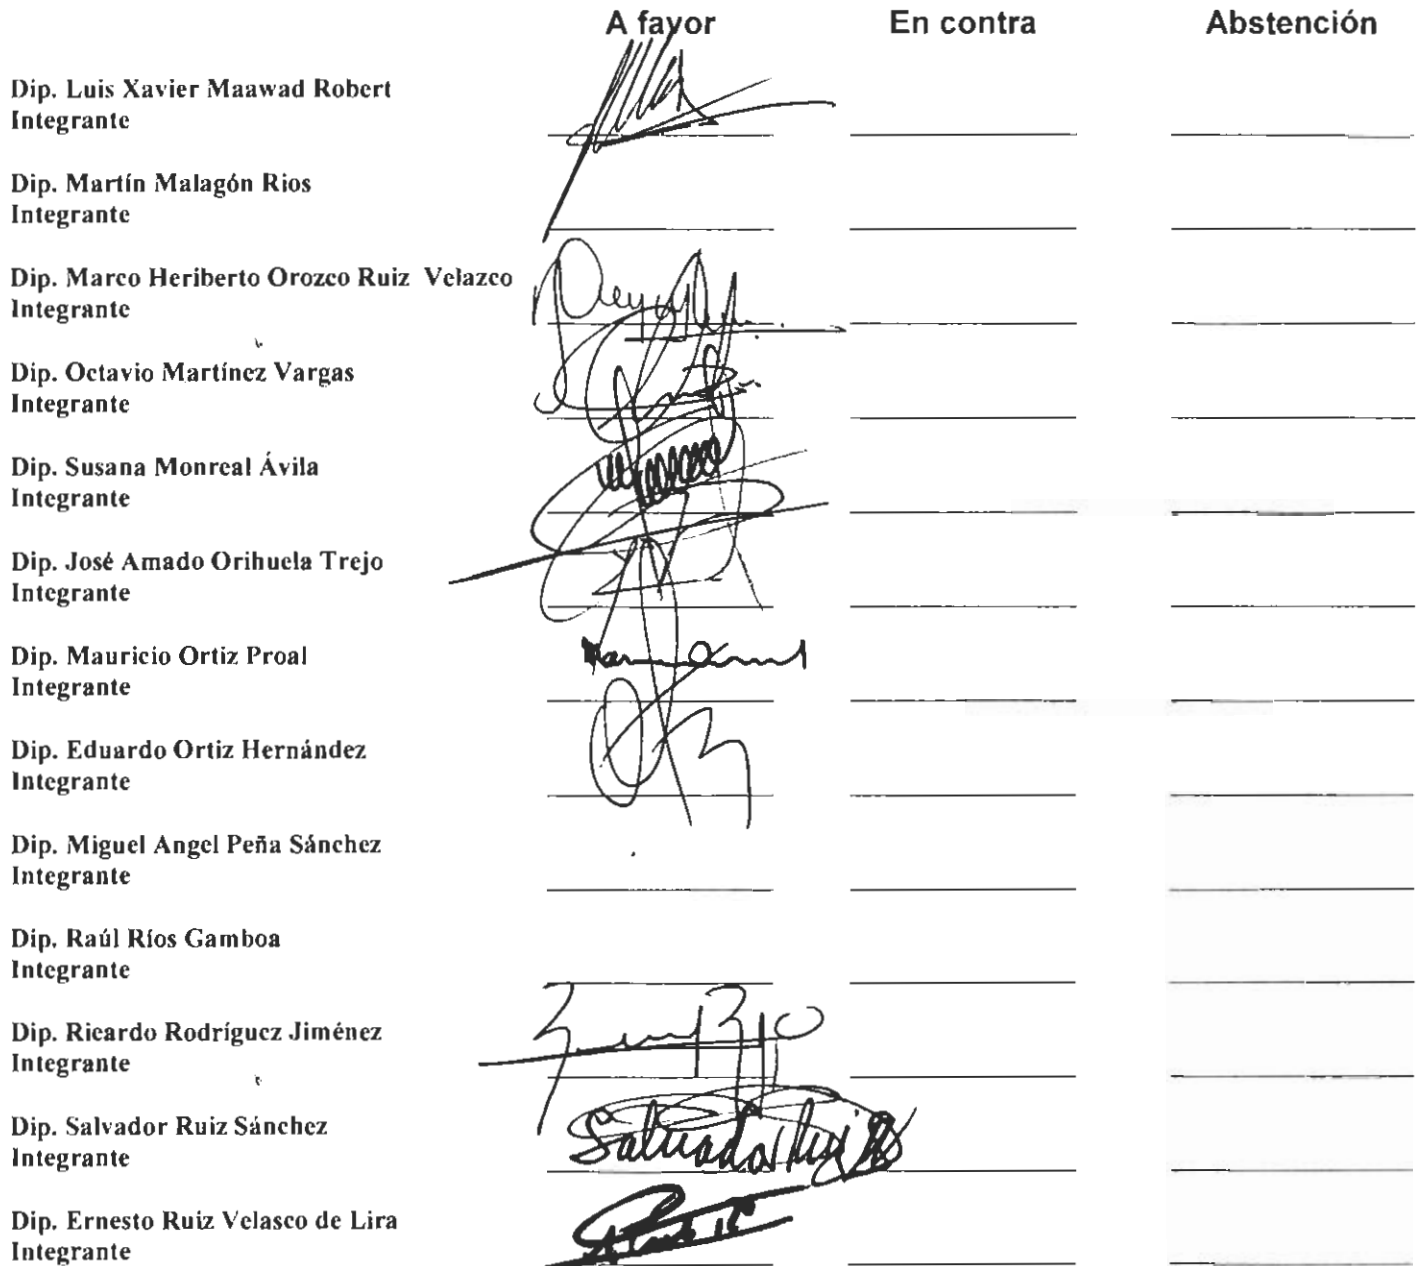 A favor En contra Abstención
Dip. Luis Xavier Maawad Robert
Integrante
Dip. Martín Malagón Rios
Integrante
Dip. Marco Heriberto Orozco Ruiz Velazco
Integrante
Dip. Octavio Martínez Vargas
Integrante
Dip. Susana Monreal Ávila
Integrante
Dip. José Amado Orihuela Trejo
Integrante
Dip. Mauricio Ortiz Proal
Integrante
Dip. Eduardo Ortiz Hernández
Integrante
Dip. Miguel Angel Peña Sánchez
Integrante
Dip. Raúl Ríos Gamboa
Integrante
Dip. Ricardo Rodríguez Jiménez
Integrante
Dip. Salvador Ruiz Sánchez
Integrante
Salvador Ruiz
Dip. Ernesto Ruiz Velasco de Lira
Integrante